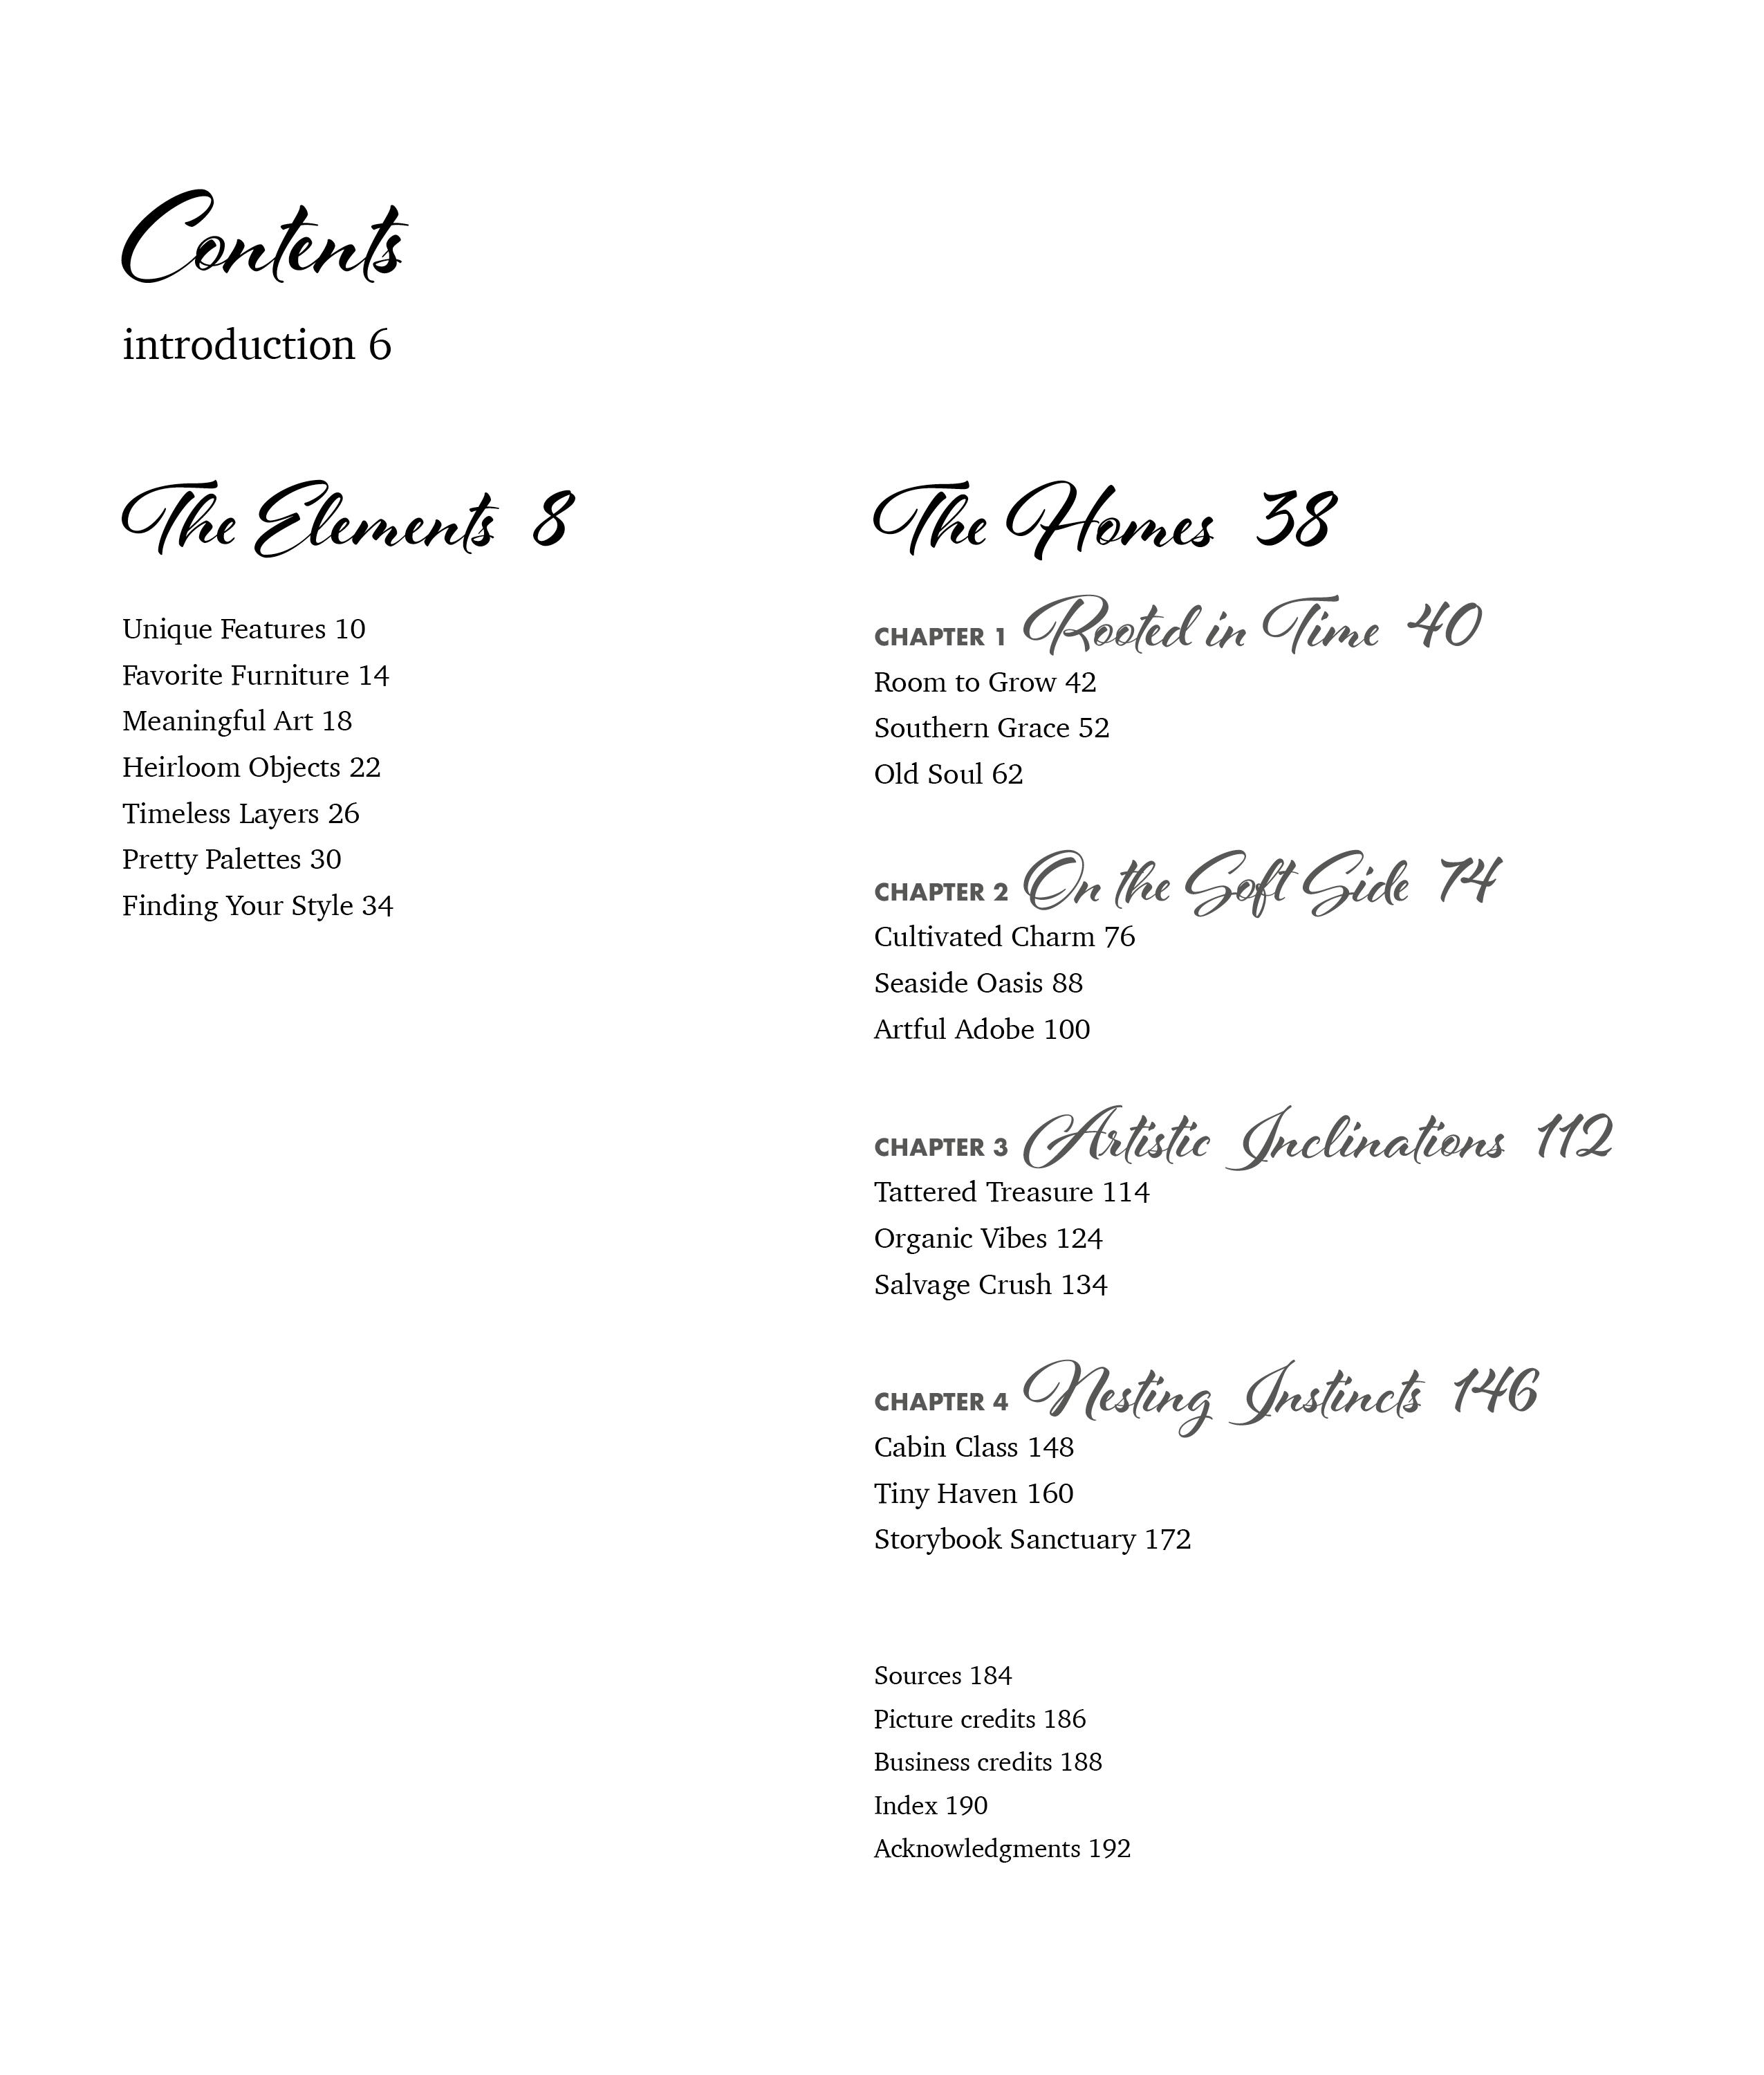 Contents
introduction 6
The Elements 8
Unique Features 10
Favorite Furniture 14
Meaningful Art 18
Heirloom Objects 22
Timeless Layers 26
Pretty Palettes 30
Finding Your Style 34
The Homes 38
CHAPTER 1 Rooted in Time 40
Room to Grow 42
Southern Grace 52
Old Soul 62
CHAPTER 2 On the Soft Side 74
Cultivated Charm 76
Seaside Oasis 88
Artful Adobe 100
CHAPTER 3 Artistic Inclinations 112
Tattered Treasure 114
Organic Vibes 124
Salvage Crush 134
CHAPTER 4 Nesting Instincts 146
Cabin Class 148
Tiny Haven 160
Storybook Sanctuary 172
Sources 184
Picture credits 186
Business credits 188
Index 190
Acknowledgments 192